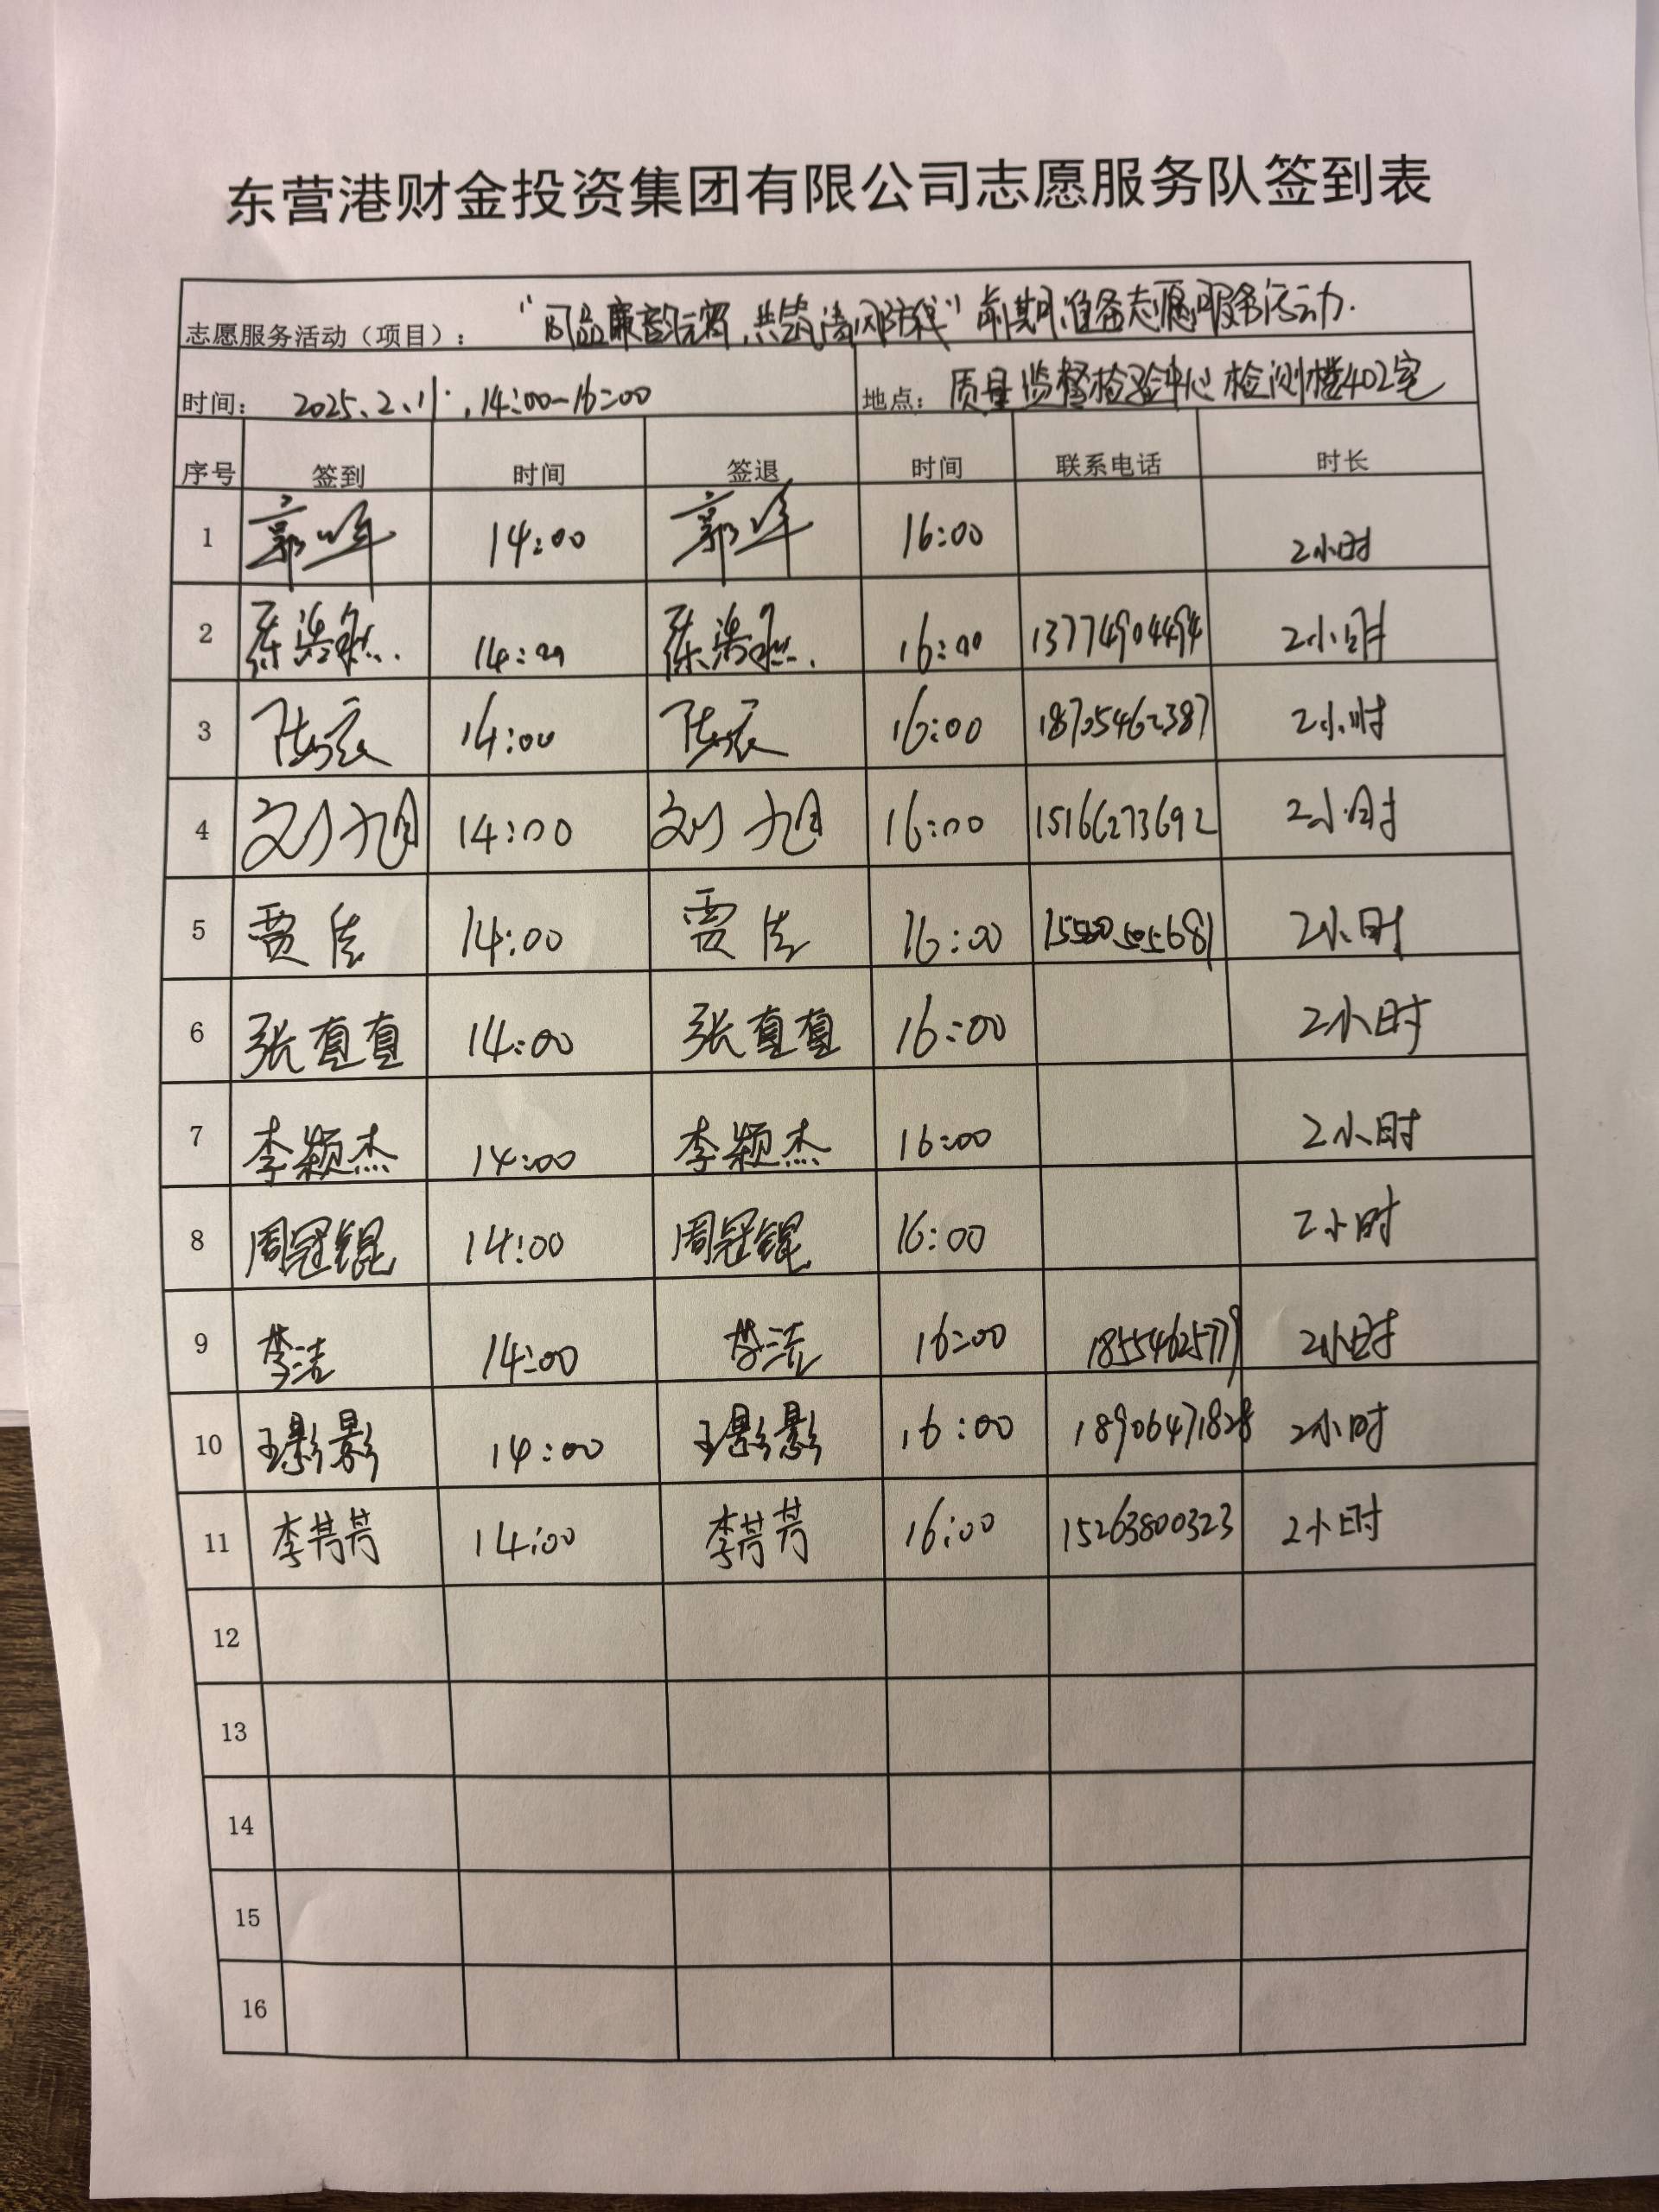 东营港财金投资集团有限公司志愿服务队签到表
志愿服务活动（项目）： “同品廉韵元宵，共筑清风防线”前期准备志愿服务活动.
时间： 2025.2.11 . 14:00-16:00 地点： 质量监督检验中心检测楼402室
序号 签到 时间 签退 时间 联系电话 时长
1 郭峰 14:00 郭峰 16:00 2小时
2 陈浩然 14:00 陈浩然 16:00 13774904494 2小时
3 陆宸 14:00 陆宸 16:00 18705462387 2小时
4 刘旭 14:00 刘旭 16:00 15166273692 2小时
5 贾佳 14:00 贾佳 16:00 2小时
6 张直直 14:00 张直直 16:00 2小时
7 李颖杰 14:00 李颖杰 16:00 2小时
8 周冠锟 14:00 周冠锟 16:00 2小时
9 李洁 14:00 李洁 16:00 18554625779 2小时
10 王影影 14:00 王影影 16:00 18906471828 2小时
11 李芳芳 14:00 李芳芳 16:00 15263800323 2小时
12
13
14
15
16